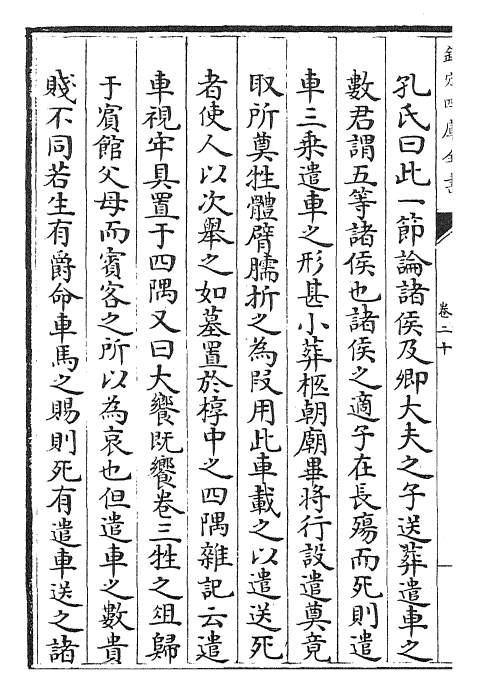 欽定四庫全書
卷二十
孔氏曰此一節論諸侯及卿大夫之子送葬遣車之
數君謂五等諸侯也諸侯之適子在長殤而死則遣
車三乗遣車之形甚小葬柩朝廟畢將行設遣奠竟
取所奠牲體臂臑折之為叚用此車載之以遣送死
者使人以次舉之如墓置於椁中之四隅雜記云遣
車視牢具置于四隅又曰大饗既饗卷三牲之俎歸
于賔館父母而賔客之所以為哀也但遣車之數貴
賤不同若生有爵命車馬之賜則死有遣車送之諸